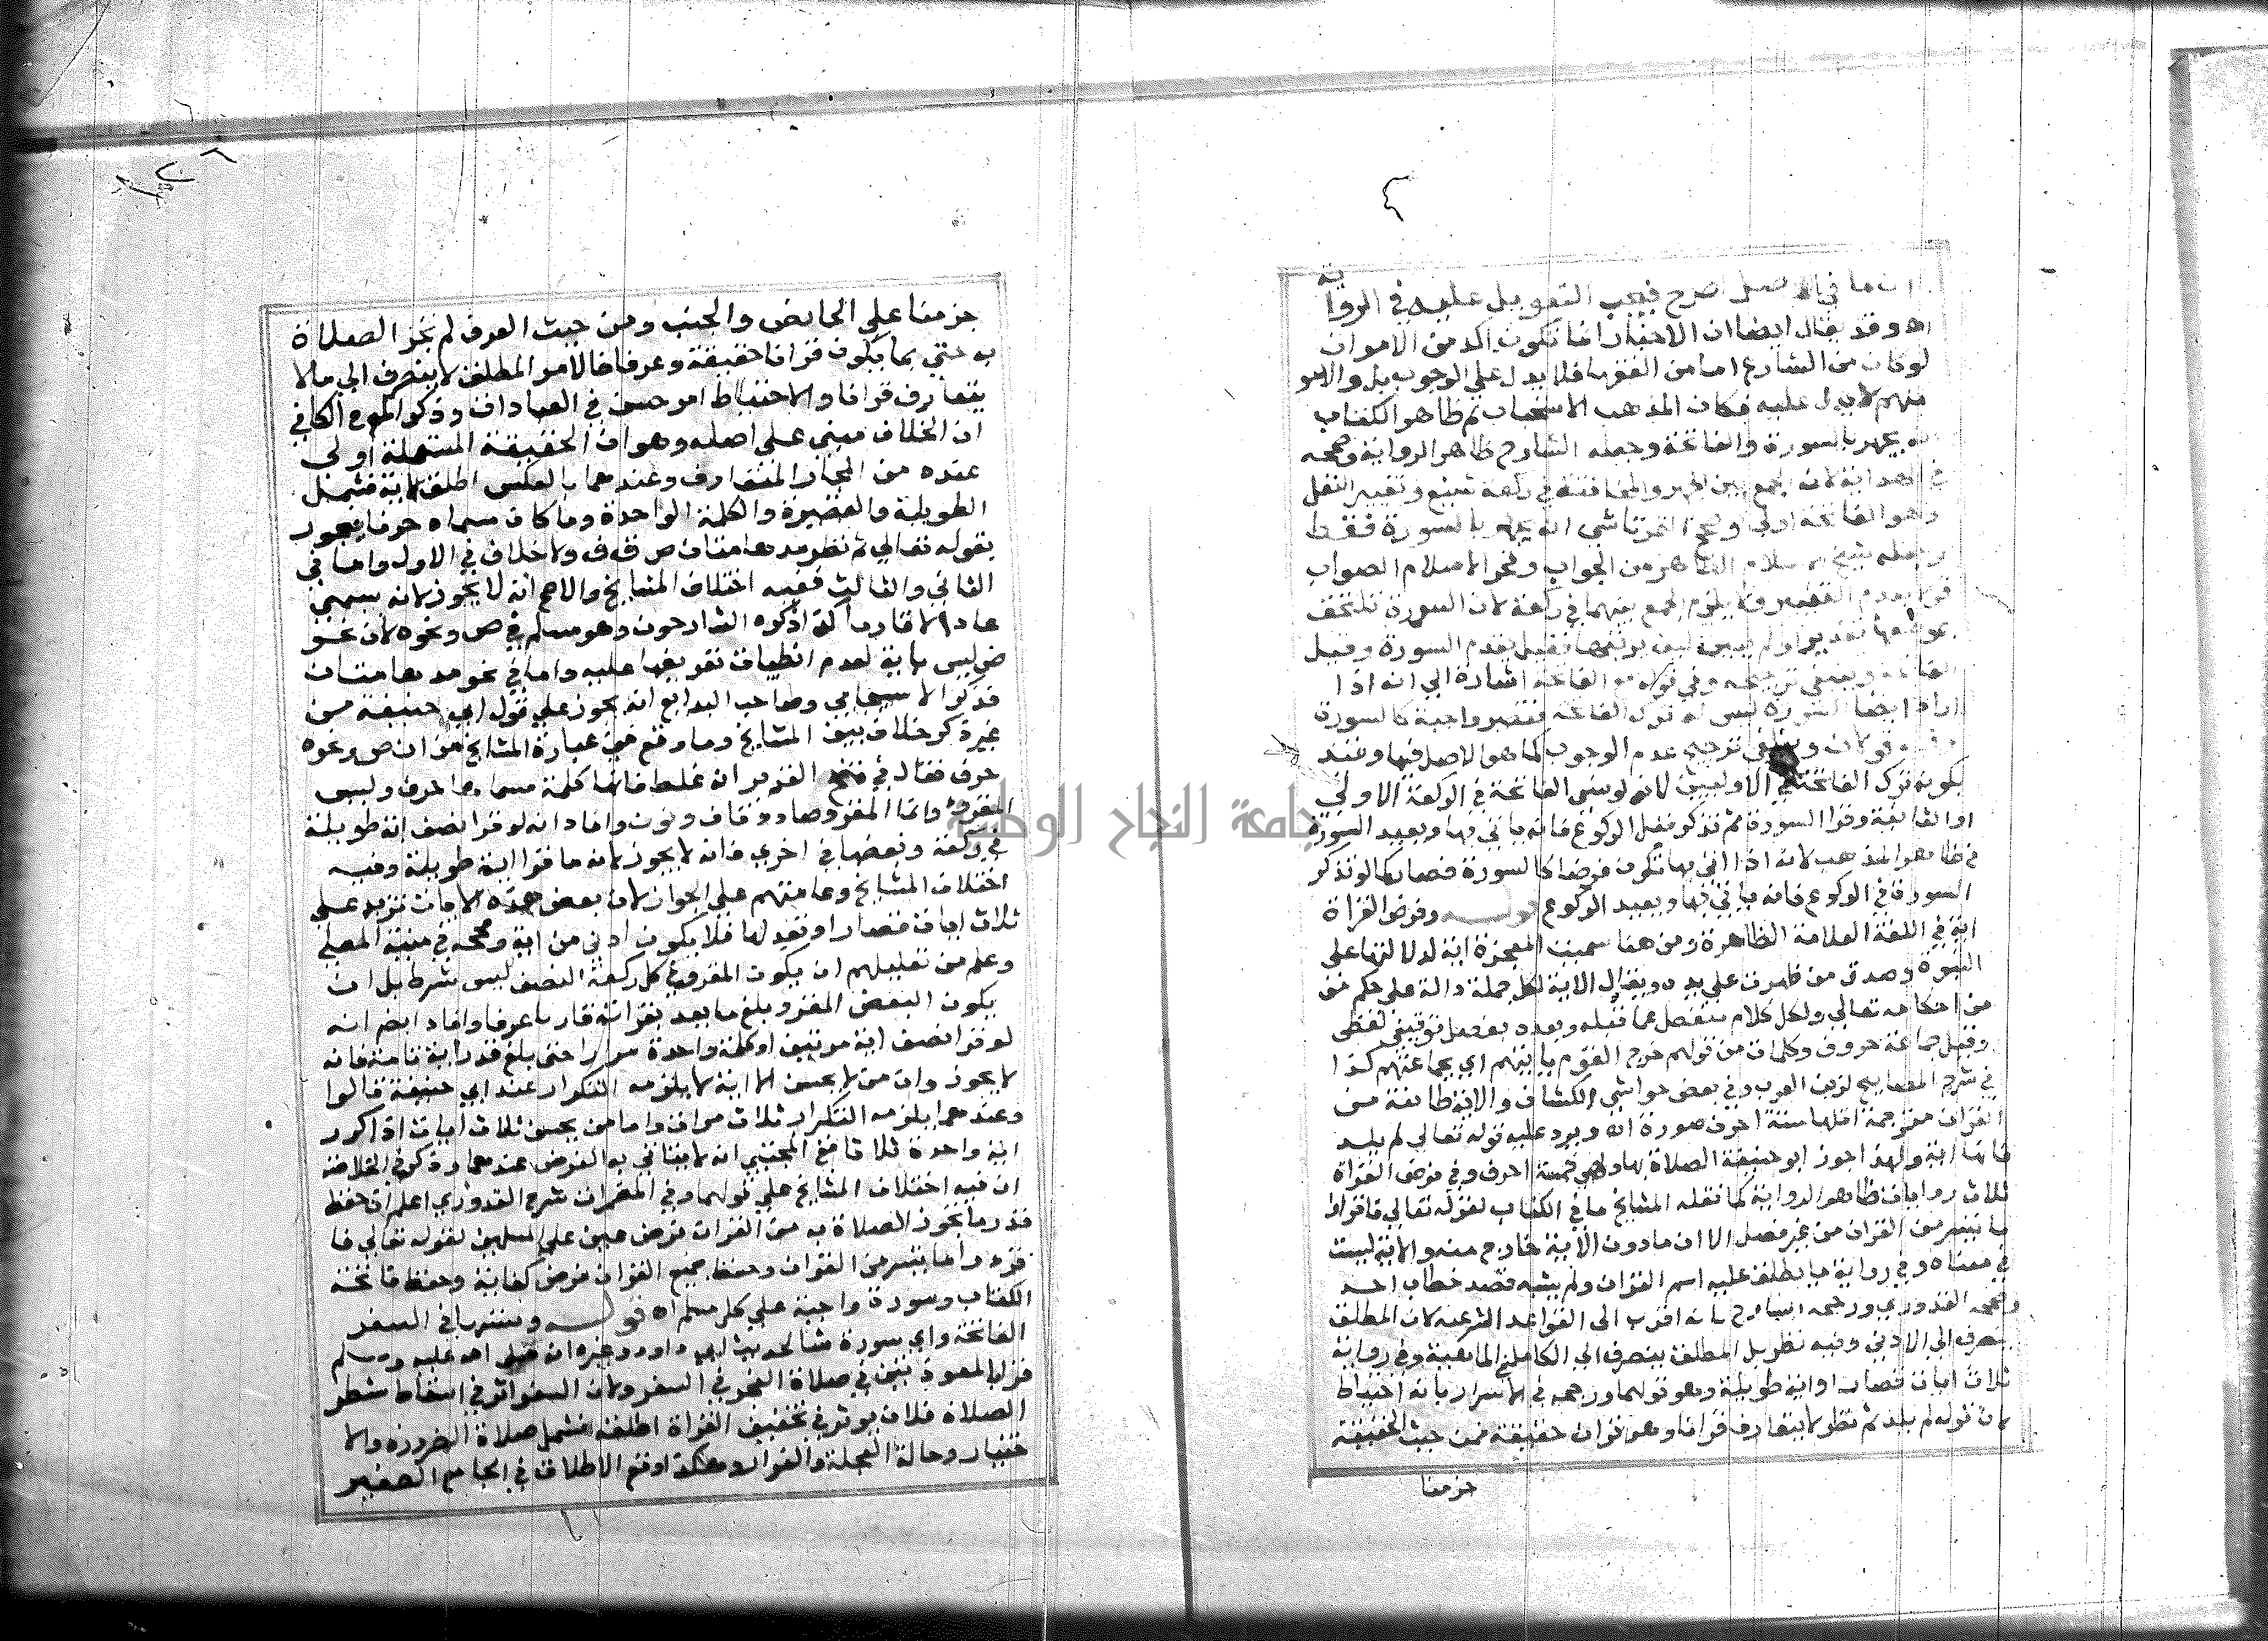 ان ما في الاصل اصرح فيجب التعويل عليه في الرواية
اه وقد يقال ايضا ان الاخبار انما تكون اكد من الامر ان
لو كان من الشارع اما من الفقها فلا يدل علي الوجوب بل والامر
منهم لا يدل عليه فكان المذهب الاستحباب ثم ظاهر الكتاب
انه يجهر بالسورة والفاتحة وجعله الشارح ظاهر الرواية وصححه
في الهداية لان الجمع بين الجهر والمخافتة في ركعة شنيع وتغيير النفل
وهو الفاتحة اولي وصحح التمرتاشي انه يجهر بالسورة فقط
وجعله شيخ الاسلام الظاهر من الجواب وفخر الاسلام الصواب
ولا يلزم الجمع بينهما في ركعة لان السورة تلتحق
بموضعها تقديرا ولم يبين كيف يرتبهما فقيل يقدم السورة وقيل
الفاتحة وينبغي ترجيحه وفي قوله مع الفاتحة اشارة الي انه اذا
اراد ايضا السورة ليس له ترك الفاتحة فتصير واجبة كالسورة
وفيه قولان وينبغي ترجيح عدم الوجوب كما هو الاصل فيها وقيد
بكونه ترك الفاتحة في الاوليين لانه لو نسي الفاتحة في الركعة الاولي
او الثانية وقرا السورة ثم تذكر قبل الركوع فانه ياتي بها ويعيد السورة
في ظاهر المذهب لانه اذا اتي بها تكون فرضا كالسورة فصار كما لو تذكر
السورة في الركوع فانه ياتي بها ويعيد الركوع قوله وفرض القراة
اية في اللغة العلامة الظاهرة ومن هنا سميت المعجزة اية لدلالتها علي
النبوة وصدق من ظهرت علي يده ويقال الاية لكل جملة دالة علي حكم من
من احكامه تعالي ولكل كلام منفصل عما قبله وبعده بفصل توقيفي لفظي
وقيل جماعة حروف وكلمات من قولهم خرج القوم باينهم اي بجماعتهم كذا
في شرح المصابيح لزين العرب وفي بعض حواشي الكشاف والاية طايفة من
القران مترجمة اقلها ستة احرف صورة اه ويرد عليه قوله تعالي لم يلد
فانها اية ولهذا جوز ابو حنيفة الصلاة بها وهي خمسة احرف وفي فرض القراة
ثلاث روايات ظاهر الرواية كما نقله المشايخ ما في الكتاب لقوله تعالي فاقراوا
ما تيسر من القران من غير فصل الا ان ما دون الاية خارج منه والاية ليست
في معناه وفي رواية ما يطلق عليه اسم القران ولم يشبه قصد خطاب احد
وصححه القدوري ورجحه الشارح بانه اقرب الي القواعد الشرعية لان المطلق
ينصرف الي الادني وفيه نظر بل المطلق ينصرف الي الكامل في الماهية وفي رواية
ثلاث ايات قصار او اية طويلة وهو قولهما ورجحه في الاسرار بانه احتياط
لان قوله لم يلد ثم نظر لا يتعارف قرانا وهو قران حقيقة فمن حيث الحقيقة
حرمنا
حرمنا علي الحايض والجنب ومن حيث العرف لم تجز الصلاة
به حتي ما يكون قرانا حقيقة وعرفا فالامر المطلق لا ينصرف الي ما لا
يتعارف قرانا والاحتياط امر حسن في العبادات وذكر المص في الكافي
ان الخلاف مبني علي اصله وهو ان الحقيقة المستعملة اولي
عنده من المجاز المتعارف وعندهما بالعكس اطلق الاية فشمل
الطويلة والقصيرة والكلمة الواحدة وما كان مسماه حرفا فيجوز
بقوله تعالي ثم نظر مدهامتان ص ق ن ولا خلاف في الاول واما في
الثاني والثالث ففيه اختلاف المشايخ والاصح انه لا يجوز لانه يسمي
عادا لا قاريا كذا ذكره الشارحون وهو مسلم في ص ونحوه لان نحو
ص ليس باية لعدم انطباق تعريفها عليه واما في نحو مدهامتان
فذكر الاسبيجابي وصاحب البدايع انه يجوز علي قول ابي حنيفة من
غير ذكر خلاف بين المشايخ وما وقع في عبارة المشايخ من ان ص ونحوه
حرف فقال في فتح القدير انه غلط فانها كلمة مسماها حرف وليس
المقروء وانما المقرو صاد وقاف ونون وافاد انه لو قرا نصف اية طويلة
في ركعة ونصفها في اخري فانه لا يجوز لانه ما قرا اية طويلة وفيه
اختلاف المشايخ وعامتهم علي الجواز لان بعض هذه الايات تزيد علي
ثلاث ايات قصار او تعدلها فلا يكون ادني من اية وصححه في منية المصلي
وعلم من تعليلهم ان يكون المقرو في كل ركعة النصف ليس بشرط بل ان
يكون البعض المقرو بلغ ما يعد بقراته قاريا عرفا وافاد ايضا انه
لو قرا نصف اية مرتين او كلمة واحدة مرارا حتي بلغ قدر اية تامة فانه
لا يجوز وان من لا يحسن الا اية لا يلزمه التكرار عند ابي حنيفة قالوا
وعندهما يلزمه التكرار ثلاث مرات واما من يحسن ثلاث ايات اذا كرر
اية واحدة ثلاثا ففي المجتبي انه لا يتاتي به الفرض عندهما وذكر في الخلاصة
ان فيه اختلاف المشايخ علي قولهما وفي المضمرات شرح القدوري اعلم ان حفظ
قدر ما تجوز الصلاة به من القران فرض عين علي المسلمين لقوله تعالي فا
قروا ما تيسر من القران وحفظ جميع القران فرض كفاية وحفظ فاتحة
الكتاب وسورة واجبة علي كل مسلم اه قوله وسنتها في السفر
الفاتحة واي سورة شا لحديث ابي داود وغيره انه صلي الله عليه وسلم
قرا بالمعوذتين في صلاة الفجر في السفر ولان السفر اثر في اسقاط شطر
الصلاة فلان يوثر في تخفيف القراة اطلقه فشمل صلاة الضرورة والا
ختيار وحالة العجلة والقرار وهكذا وقع الاطلاق في الجامع الصغير
جامعة النجاح الوطنية